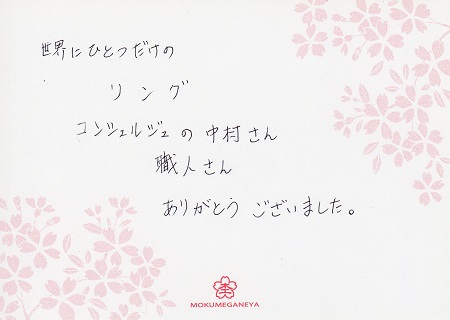 世界にひとつだけの
リング
コンシェルジュの中村さん
職人さん
ありがとうございました。
杢
MOKUMEGANEYA